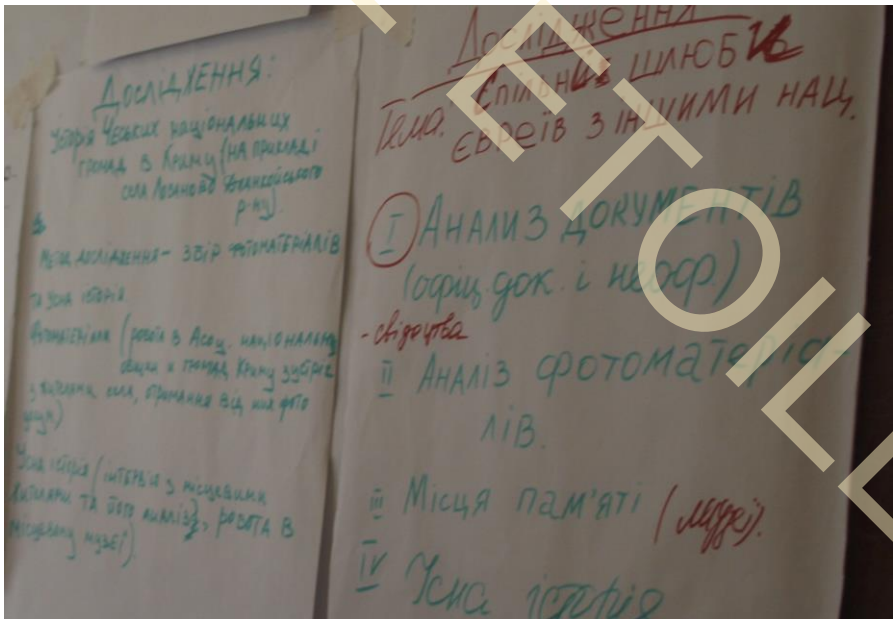 Дослідження:
Історія Чеських національних
громад в Криму (на прикладі
села Лозаново Джанкойського
р-ну).
Метод дослідження – збір фотоматеріалів
та усна історія.
Фотоматеріали (робота в Асоц. національних
общин и громад Криму, зустріч
з жителями села, отримання від них фото
Усна історія (інтервію з місцевими
жителями та його аналіз), робота в
місцевому музеї).
Дослідження
Тема: Спільних шлюбів
євреїв з іншими нац.
I Анализ документів
(офіц. док. і неоф.)
- свідоцтва
II Аналіз фотоматеріа-
лів.
III Місця пам'яті (музеї).
IV Усна історія
ETOILE